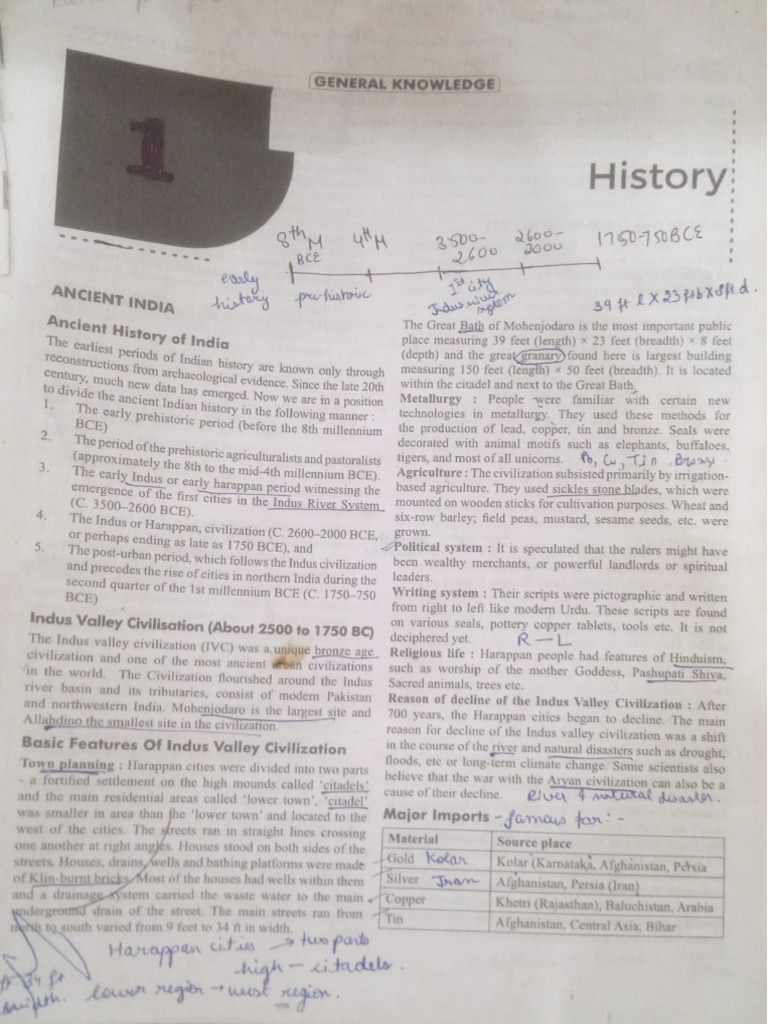 GENERAL KNOWLEDGE
1
History
8th M BCE
4th M
3500-2600
2600-2000
1750-750BCE
early history
pre-historic
1st city Indus river system
39 ft l X 23 ft b X 8 ft d.
ANCIENT INDIA
Ancient History of India
The earliest periods of Indian history are known only through
reconstructions from archaeological evidence. Since the late 20th
century, much new data has emerged. Now we are in a position
to divide the ancient Indian history in the following manner :
1. The early prehistoric period (before the 8th millennium
BCE)
2. The period of the prehistoric agriculturalists and pastoralists
(approximately the 8th to the mid-4th millennium BCE).
3. The early Indus or early harappan period witnessing the
emergence of the first cities in the Indus River System
(C. 3500–2600 BCE).
4. The Indus or Harappan, civilization (C. 2600–2000 BCE,
or perhaps ending as late as 1750 BCE), and
5. The post-urban period, which follows the Indus civilization
and precedes the rise of cities in northern India during the
second quarter of the 1st millennium BCE (C. 1750–750
BCE)
Indus Valley Civilisation (About 2500 to 1750 BC)
The Indus valley civilization (IVC) was a unique bronze age
civilization and one of the most ancient urban civilizations
in the world. The Civilization flourished around the Indus
river basin and its tributaries, consist of modern Pakistan
and northwestern India. Mohenjodaro is the largest site and
Allahdino the smallest site in the civilization.
Basic Features Of Indus Valley Civilization
Town planning : Harappan cities were divided into two parts
- a fortified settlement on the high mounds called 'citadels'
and the main residential areas called 'lower town', 'citadel'
was smaller in area than the 'lower town' and located to the
west of the cities. The streets ran in straight lines crossing
one another at right angles. Houses stood on both sides of the
streets. Houses, drains, wells and bathing platforms were made
of Klin-burnt bricks. Most of the houses had wells within them
and a drainage system carried the waste water to the main
underground drain of the street. The main streets ran from
north to south varied from 9 feet to 34 ft in width.
Harappan cities → two parts
high - citadels.
lower region → west region.
34 ft
The Great Bath of Mohenjodaro is the most important public
place measuring 39 feet (length) × 23 feet (breadth) × 8 feet
(depth) and the great granary found here is largest building
measuring 150 feet (length) × 50 feet (breadth). It is located
within the citadel and next to the Great Bath.
Metallurgy : People were familiar with certain new
technologies in metallurgy. They used these methods for
the production of lead, copper, tin and bronze. Seals were
decorated with animal motifs such as elephants, buffaloes,
tigers, and most of all unicorns. Pb, Cu, Tin, Bronze.
Agriculture : The civilization subsisted primarily by irrigation-
based agriculture. They used sickles stone blades, which were
mounted on wooden sticks for cultivation purposes. Wheat and
six-row barley; field peas, mustard, sesame seeds, etc. were
grown.
Political system : It is speculated that the rulers might have
been wealthy merchants, or powerful landlords or spiritual
leaders.
Writing system : Their scripts were pictographic and written
from right to left like modern Urdu. These scripts are found
on various seals, pottery copper tablets, tools etc. It is not
deciphered yet. R — L
Religious life : Harappan people had features of Hinduism,
such as worship of the mother Goddess, Pashupati Shiva,
Sacred animals, trees etc.
Reason of decline of the Indus Valley Civilization : After
700 years, the Harappan cities began to decline. The main
reason for decline of the Indus valley civilization was a shift
in the course of the river and natural disasters such as drought,
floods, etc or long-term climate change. Some scientists also
believe that the war with the Aryan civilization can also be a
cause of their decline. River & natural disaster.
Major Imports - famous for: -
Material Source place
Gold Kolar Kolar (Karnataka, Afghanistan, Persia
Silver Iran Afghanistan, Persia (Iran)
Copper Khetri (Rajasthan), Baluchistan, Arabia
Tin Afghanistan, Central Asia, Bihar